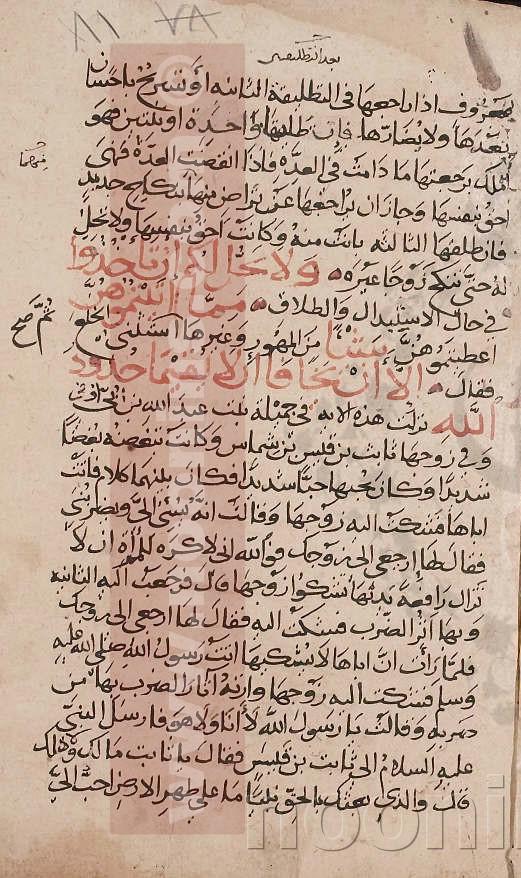 ٨١ ٧٨
بعد التطليقتين
بمعروف اذا راجعها في التطليقة الثانية أو تسريح باحسان
بعدها ولا يضارها فان طلقها واحدة او ثنتين فهو
أملك برجعتها ما دامت في العدة فاذا انقضت العدة فهي
منهما
احق بنفسها وجاز ان يراجعها عن تراض منهما بنكاح جديد
فان طلقها الثالثة بانت منه وكانت احق بنفسها ولا تحل
له حتى تنكح زوجا غيره ولا يحل لكم ان تأخذوا
في حال الاستبدال والطلاق مما آتيتموهن
اعطيتموهن شيئا من المهور وغيرها استثنى الخلع
ثم صح
فقال الا ان يخافا ان لا يقيما حدود
الله نزلت هذه الاية في جميلة بنت عبد الله بن ابي اوفى
وفي زوجها ثابت بن قيس بن شماس وكانت تبغضه بغضا
شديدا وكان يحبها حبا شديدا فكان بينهما كلام فاتت
اباها فشكت اليه زوجها وقالت انه يسئ الي ويضربني
فقال لها ارجعي الى زوجك فوالله اني لاكره للمرأة ان لا
تزال رافعة يديها تشكو زوجها قال فرجعت اليه الثانية
وبها اثر الضرب فشكت اليه فقال لها ارجعي الى زوجك
فلما رأت ان اباها لا يشكيها اتت رسول الله صلى الله عليه
وسلم فشكت اليه زوجها وارته آثارا لضرب بها من
ضربه وقالت يا رسول الله لا أنا ولا هو فارسل النبي
عليه السلام الى ثابت بن قيس فقال يا ثابت مالك ولاهلك
قال والذي بعثك بالحق نبيا ما على ظهر الارض احب الي